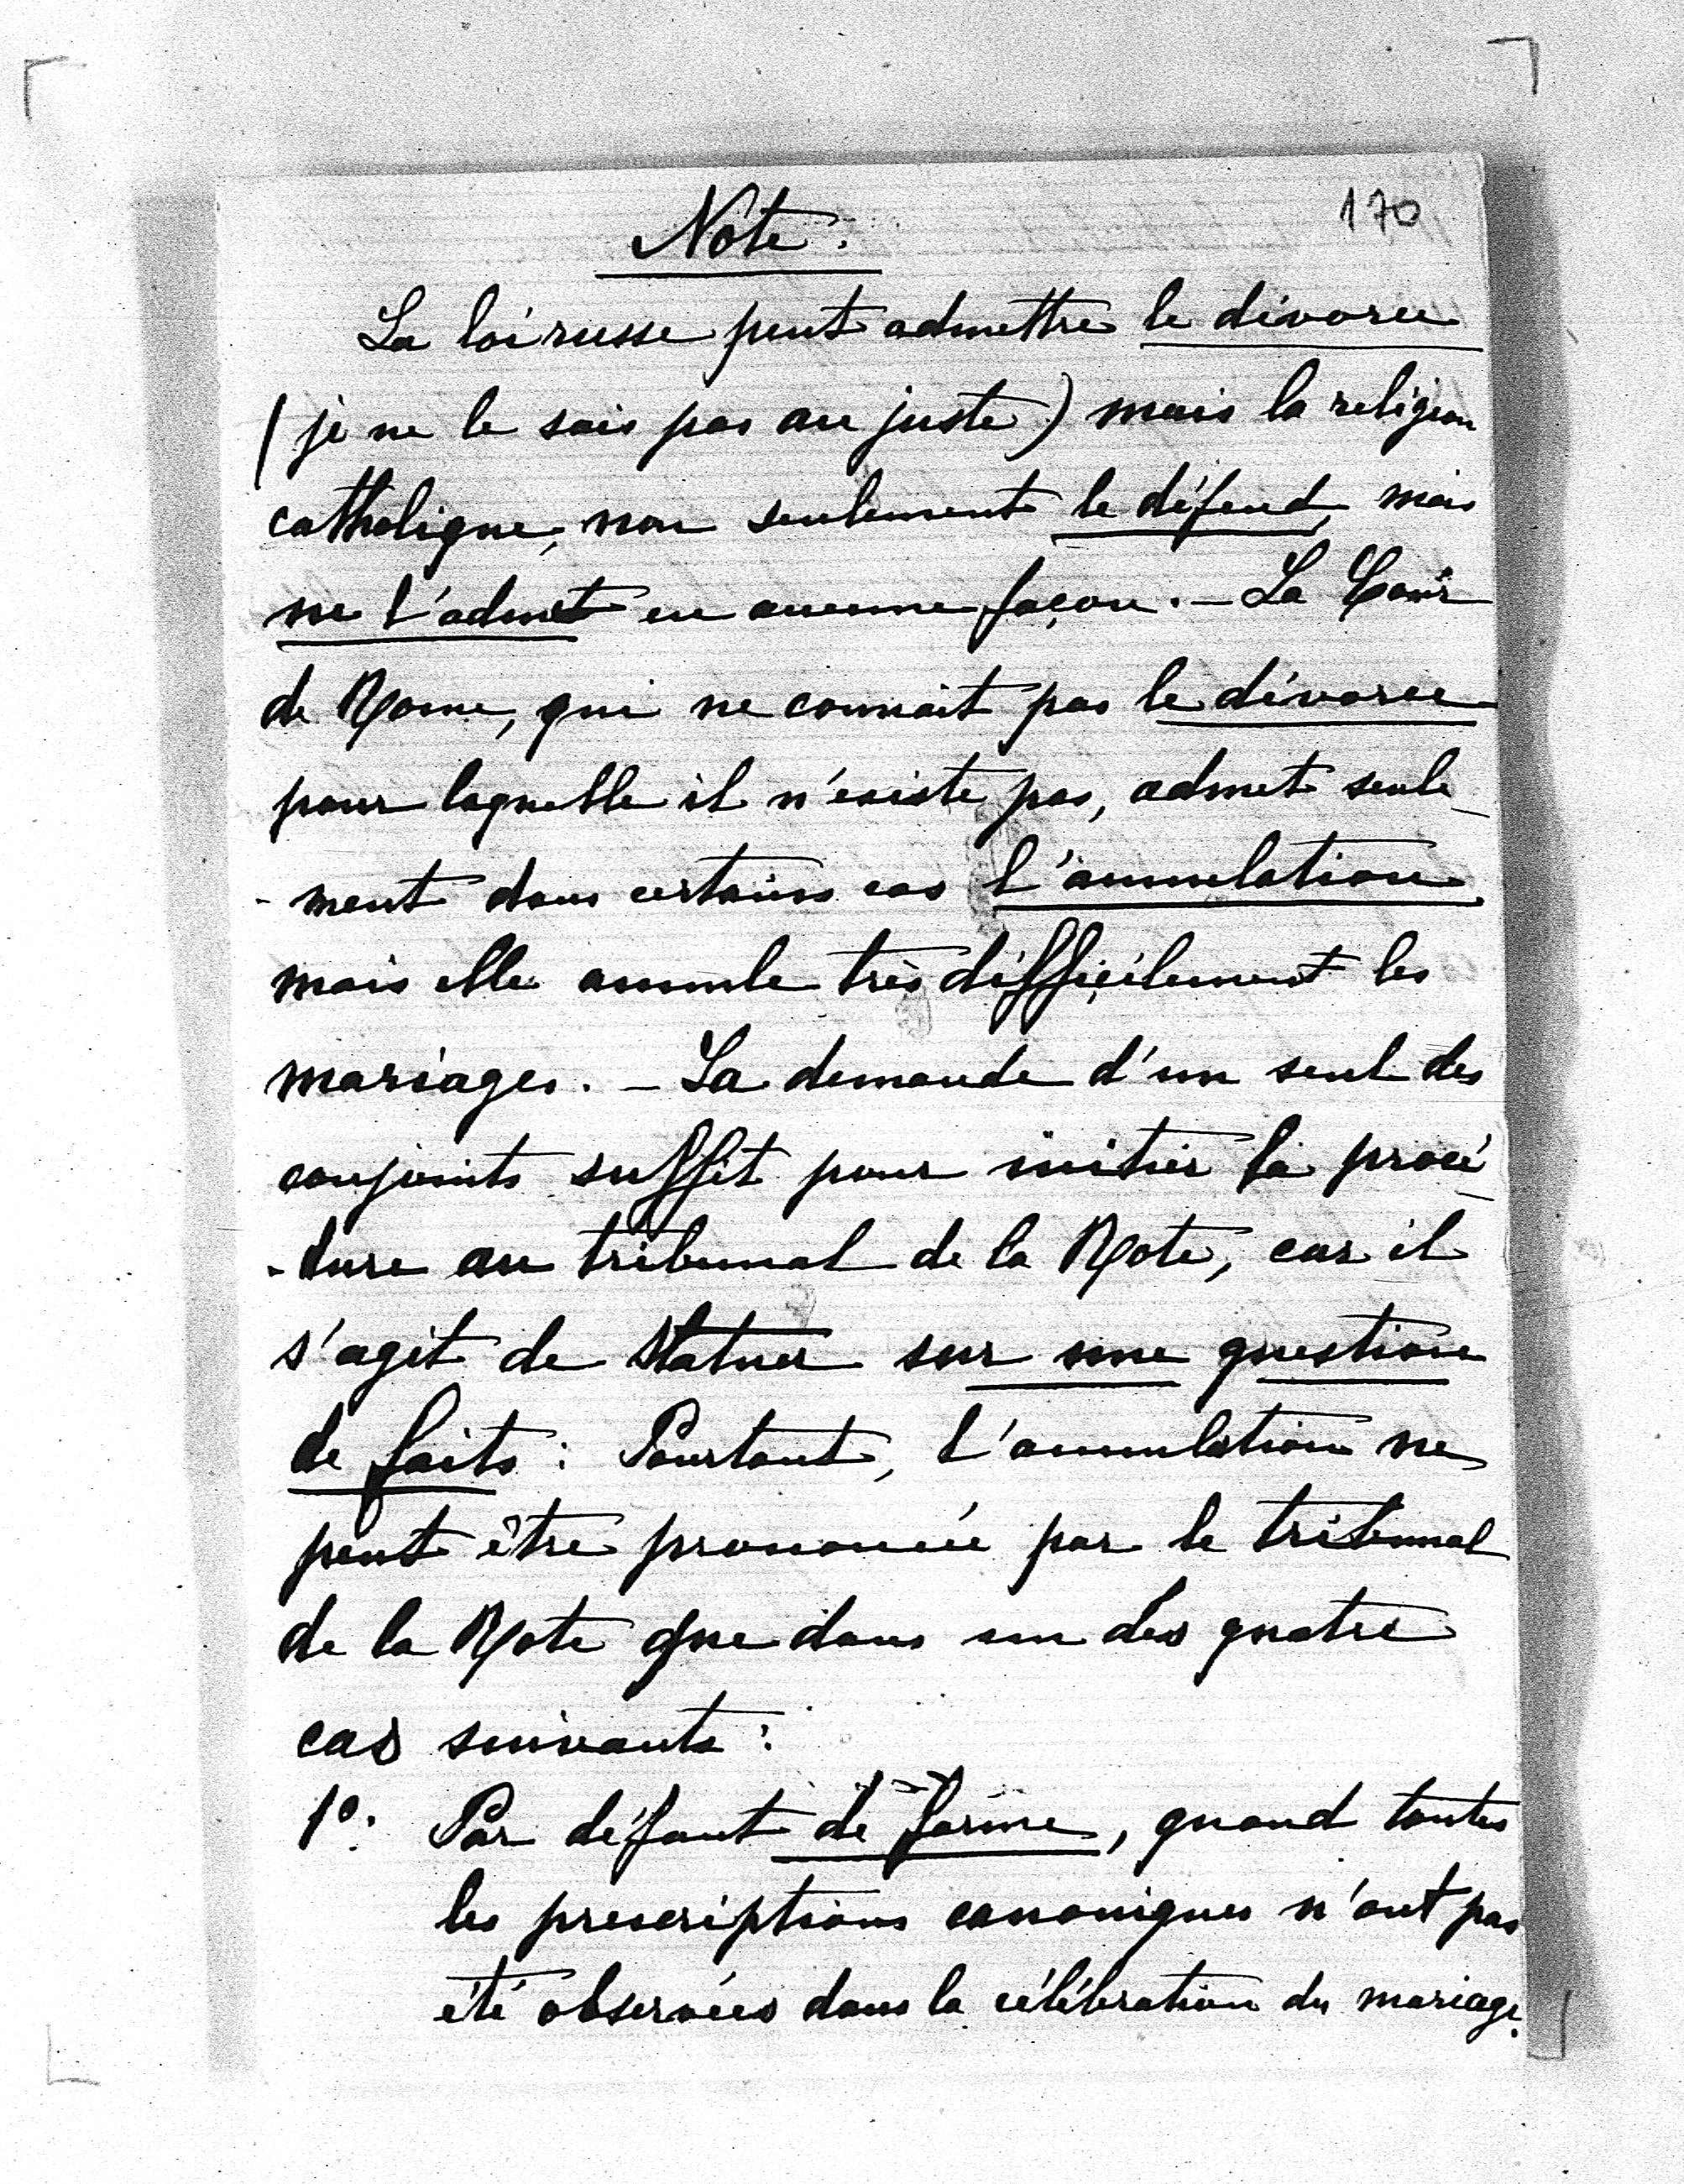 170
Note:
La loi russe peut admettre le divorce
(je ne le sais pas au juste) mais la religion
catholique, non seulement le défend, mais
ne l'admet en aucune façon. — La Cour
de Rome, qui ne connait pas le divorce
pour laquelle il n'existe pas, admet seule-
-ment dans certains cas l'annulation
mais elle annule très difficilement les
mariages. — La demande d'un seul des
conjoints suffit pour initier la procé-
-dure au tribunal de la Rote, car il
s'agit de statuer sur une question
de faits: Pourtant, l'annulation ne
peut être prononcée par le tribunal
de la Rote que dans un des quatre
cas suivants:
1º: Par défaut de forme, quand toutes
les prescriptions canoniques n'ont pas
été observées dans la célébration du mariage.